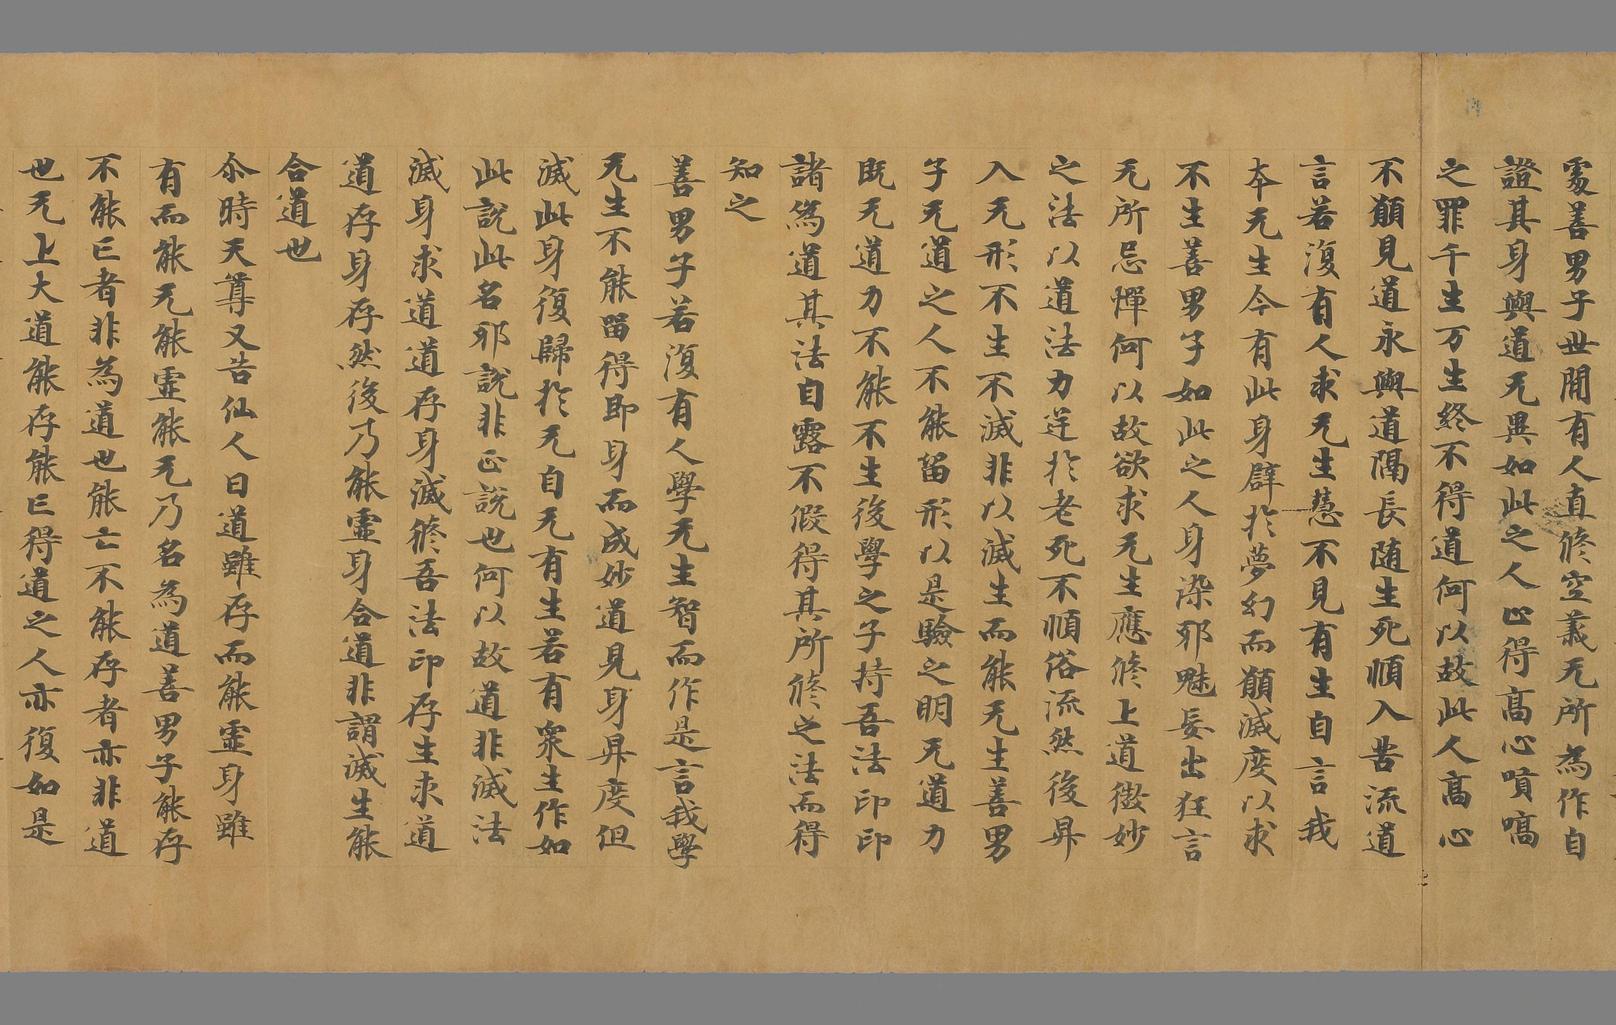 處善男子世間有人直修空義无所為作自
證其身與道无異如此之人㠯得高心嘳嗃
之罪千生万生終不得道何以故此人高心
不願見道永與道隔長随生死順入苦流道
言若復有人求无生慧不見有生自言我
本无生今有此身辟扵夢幻而願滅度以求
不生善男子如此之人身染邪魅妄出狂言
无所忌憚何以故欲求无生應修上道微妙
之法以道法力逆扵老死不順俗流然後昇
入无形不生不滅非以滅生而能无生善男
子无道之人不能留形以是驗之明无道力
既无道力不能不生後學之子持吾法印印
諸為道其法自露不假得其所修之法而得
知之
善男子若復有人學无生智而作是言我學
无生不能留得即身而成妙道見身昇度但
滅此身復歸扵无自无有生若有衆生作如
此說此名邪說非正說也何以故道非滅法
滅身求道道存身滅修吾法印存生求道
道存身存然後乃能靈身合道非謂滅生能
合道也
尒時天尊又告仙人曰道雖存而能靈身雖
有而能无能靈能无乃名為道善男子能存
不能亡者非為道也能亡不能存者亦非道
也无上大道能存能亡得道之人亦復如是